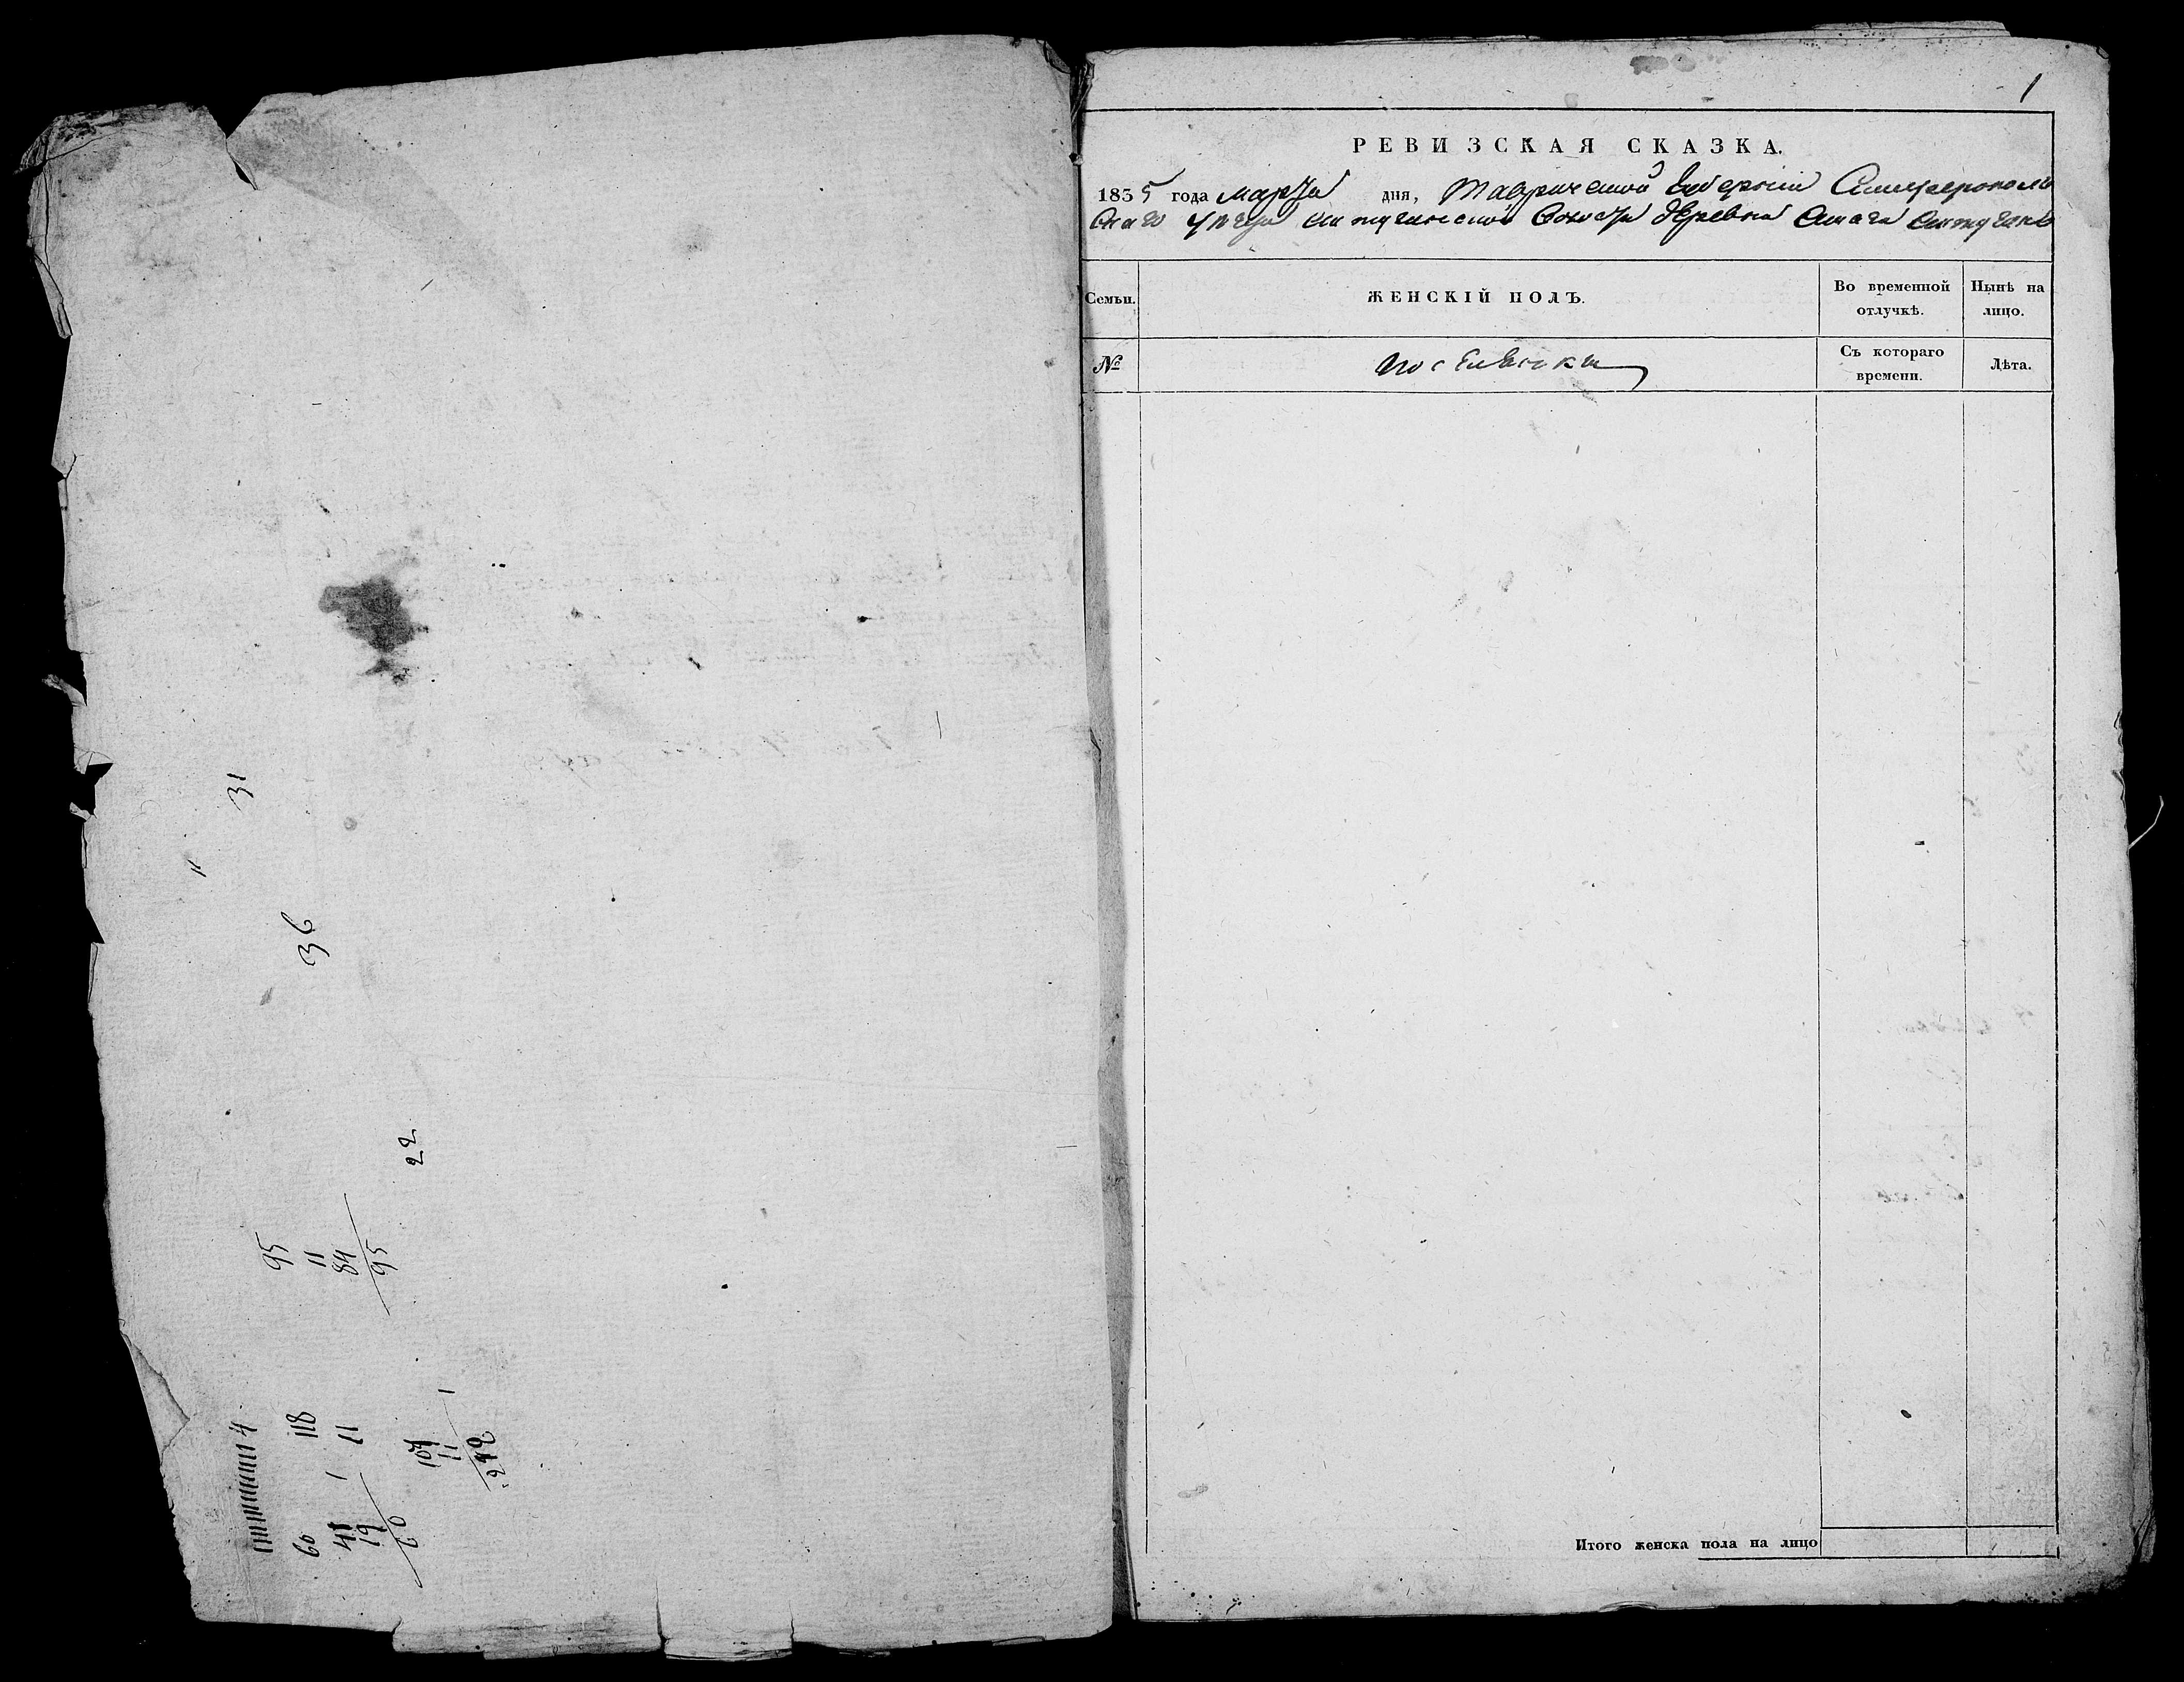 31
"
36
22
95
11
84
95
4
118
11
1
60
41
19
60
107
11
1
РЕВИЗСКАЯ СКАЗКА.
1835 года марта дня, Таврической Губернии Симферополь
скаго уезда волости деревни
Семьи.
ЖЕНСКІЙ ПОЛЪ.
Во временной
отлучкѣ.
Нынѣ на
лицо.
№
поселянки
Съ котораго
времени.
Лѣта.
Итого женска пола на лицо